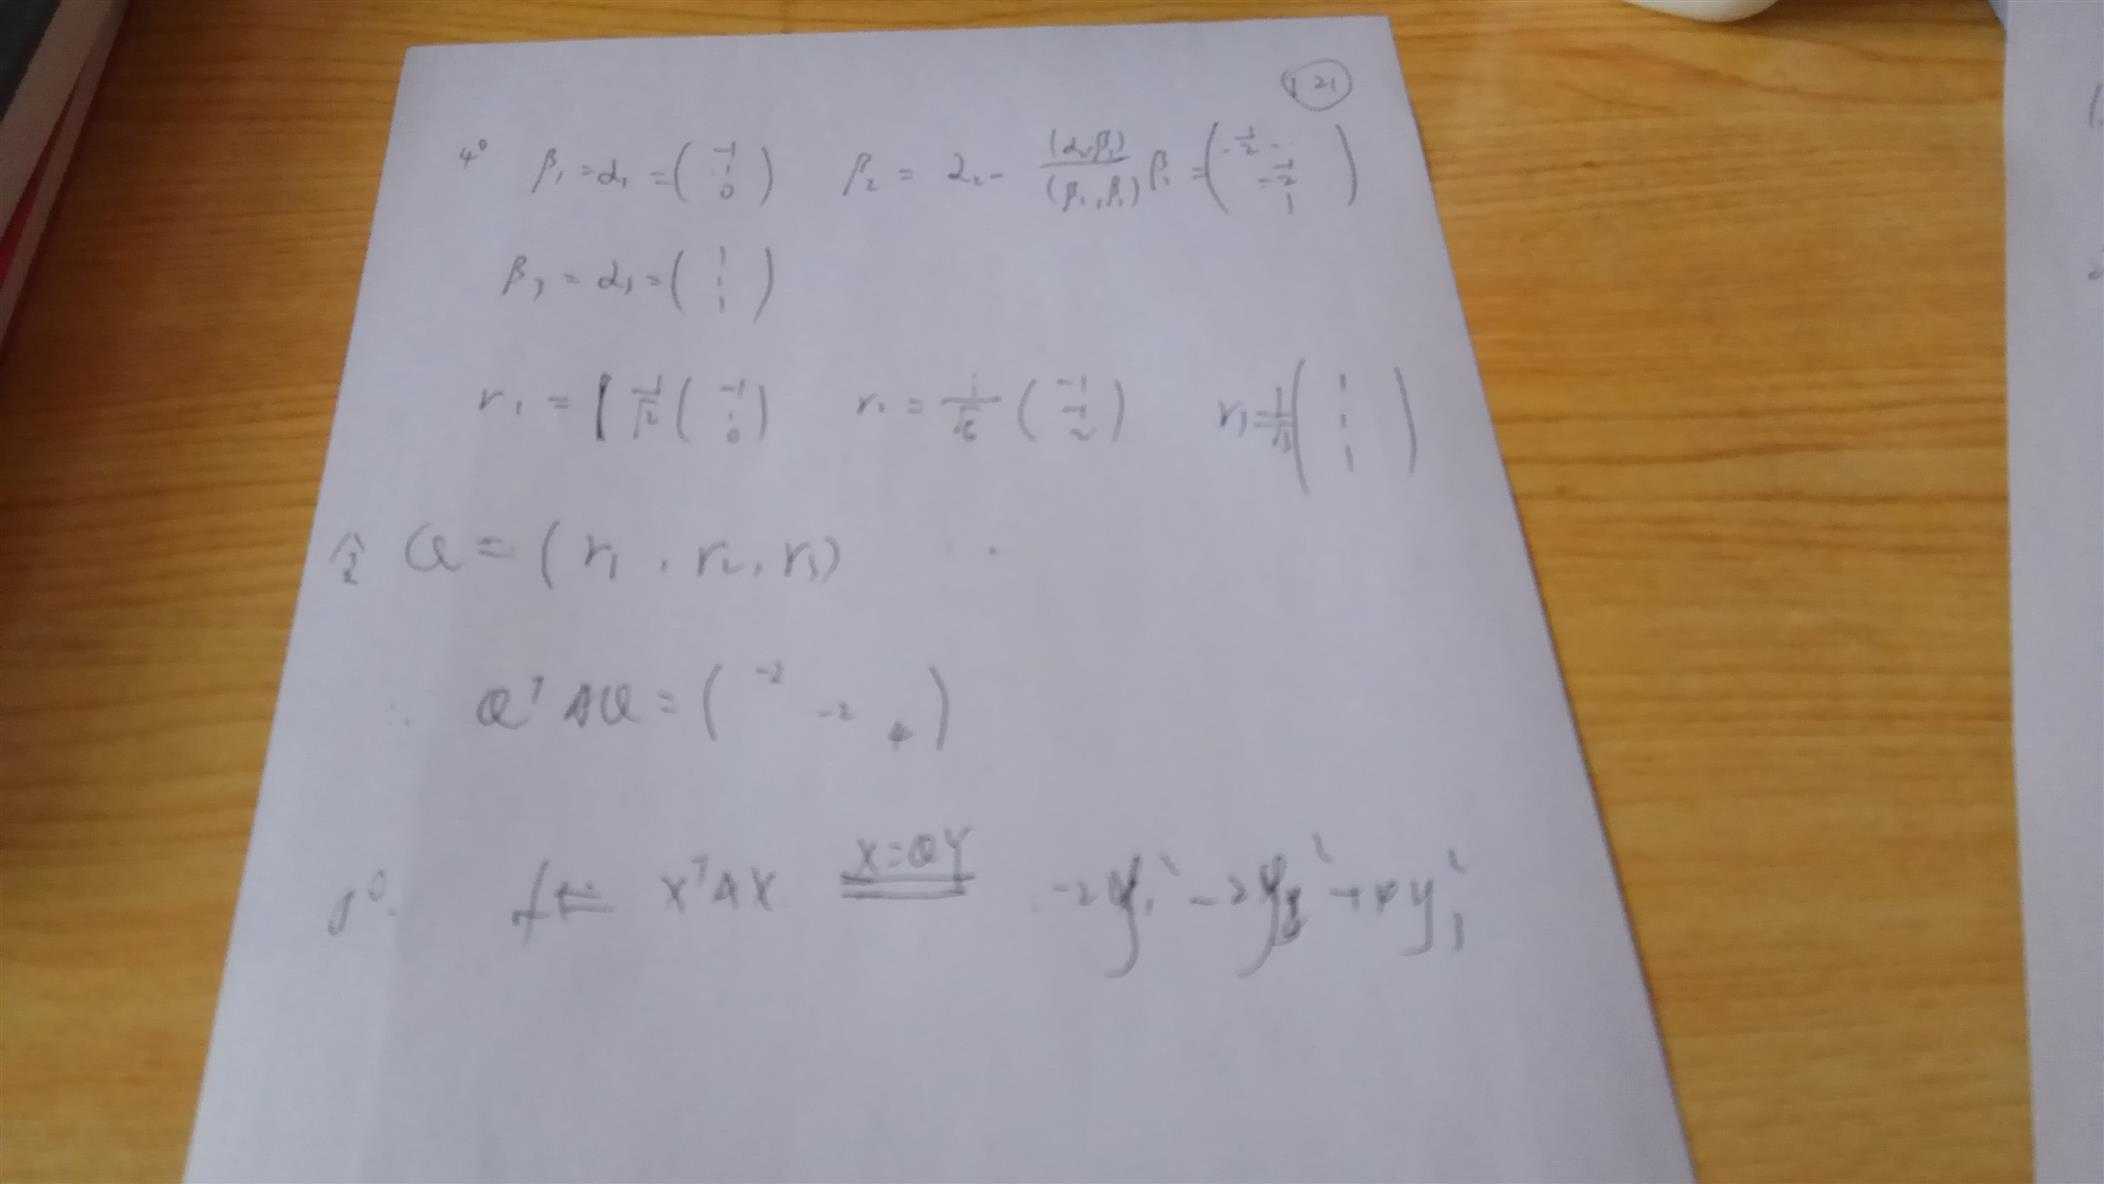 1 21
4° β₁ = α₁ = ( -1 1 0 ) β₂ = α₂ - (α₂,β₁)/(β₁,β₁) β₁ = ( -1/2 -1/2 1 )
β₃ = α₃ = ( 1 1 1 )
r₁ = 1/√2 ( -1 1 0 ) r₂ = 1/√6 ( -1 -1 2 ) r₃ = 1/√3 ( 1 1 1 )
令 Q = ( r₁ , r₂ , r₃ )
∴ QᵀAQ = ( -2 -2 4 )
5°. f = XᵀAX X=QY -2y₁² - 2y₂² + 4y₃²